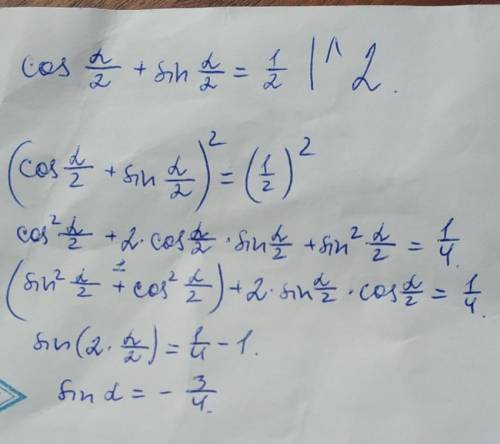 cos α/2 + sin α/2 = 1/2 |^2.
(cos α/2 + sin α/2)² = (1/2)²
cos² α/2 + 2·cos α/2 · sin α/2 + sin² α/2 = 1/4.
(sin² α/2 + cos² α/2) + 2·sin α/2 · cos α/2 = 1/4.
sin(2· α/2) = 1/4 - 1.
sin α = - 3/4.